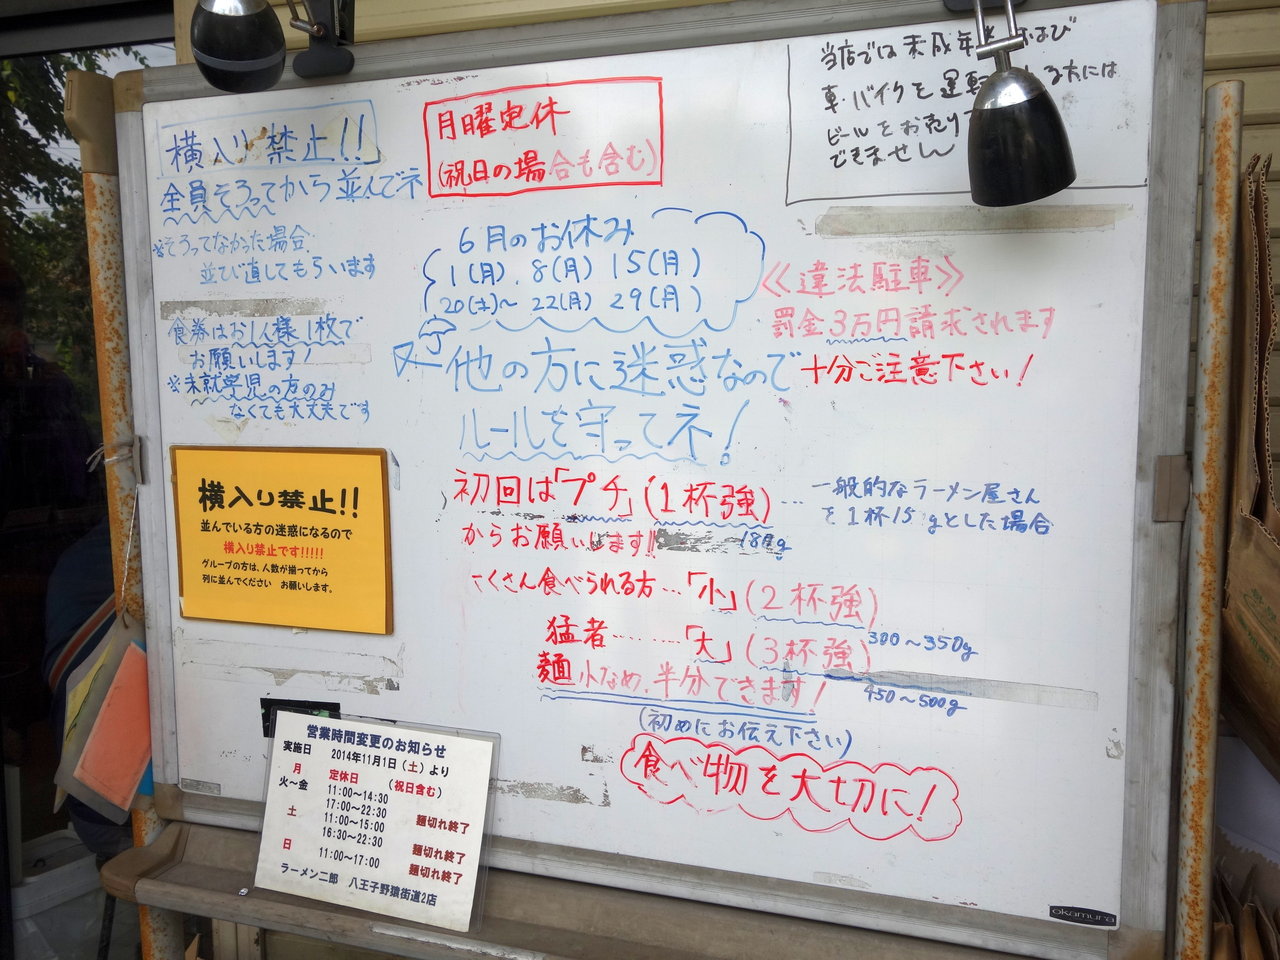 横入り禁止!!
全員そろってから並んでネ
※そろってなかった場合
並び直してもらいます
食券はお1人様1枚で
お願いします!
※未就学児の方のみ
なくても大丈夫です
月曜定休
(祝日の場合も含む)
当店では未成年 および
車・バイクを運転 る方には
ビールをお売り
できません
6月のお休み
1(月). 8(月) 15(月)
20(土)~ 22(月) 29(月)
《違法駐車》
罰金3万円請求されます
十分ご注意下さい!
他の方に迷惑なので
ルールを守ってネ!
初回は「プチ」(1杯強)
… 一般的なラーメン屋さん
を1杯15 gとした場合
からお願いします!!
くさん食べられる方…「小」(2杯強)
300~350g
猛者……「大」(3杯強)
450~500g
麺 少なめ、半分できます!
(初めにお伝え下さい)
食べ物を大切に!
横入り禁止!!
並んでいる方の迷惑になるので
横入り禁止です!!!!!
グループの方は、人数が揃ってから
列に並んでください お願いします。
営業時間変更のお知らせ
実施日 2014年11月1日(土)より
月 定休日 (祝日含む)
火~金 11:00~14:30
17:00~22:30 麺切れ終了
土 11:00~15:00
16:30~22:30 麺切れ終了
日 11:00~17:00 麺切れ終了
ラーメン二郎 八王子野猿街道2店
okamura